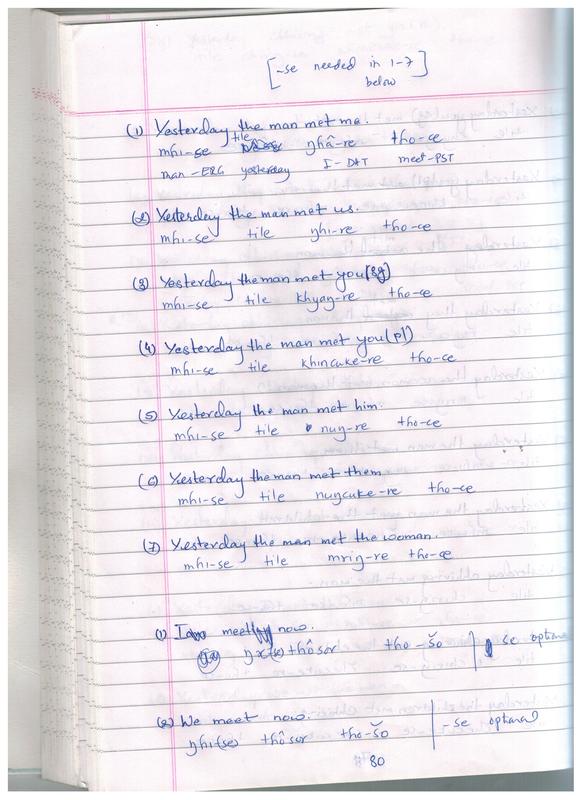 [-se needed in 1-7]
below
(1) Yesterday the man met me.
mhi-se tile ŋhâ-re tho-ce
man-ERG yesterday I-DAT meet-PST
(2) Yesterday the man met us.
mhi-se tile ŋhi-re tho-ce
(3) Yesterday the man met you (sg)
mhi-se tile khyaŋ-re tho-ce
(4) Yesterday the man met you (pl)
mhi-se tile khincuke-re tho-ce
(5) Yesterday the man met him.
mhi-se tile nuŋ-re tho-ce
(6) Yesterday the man met them
mhi-se tile nuŋcuke-re tho-ce
(7) Yesterday the man met the woman.
mhi-se tile mriŋ-re tho-ce
(1) I meet now.
thôsor tho-šo se optional
(2) We meet now.
ŋhi(se) thôsor tho-šo -se optional
80